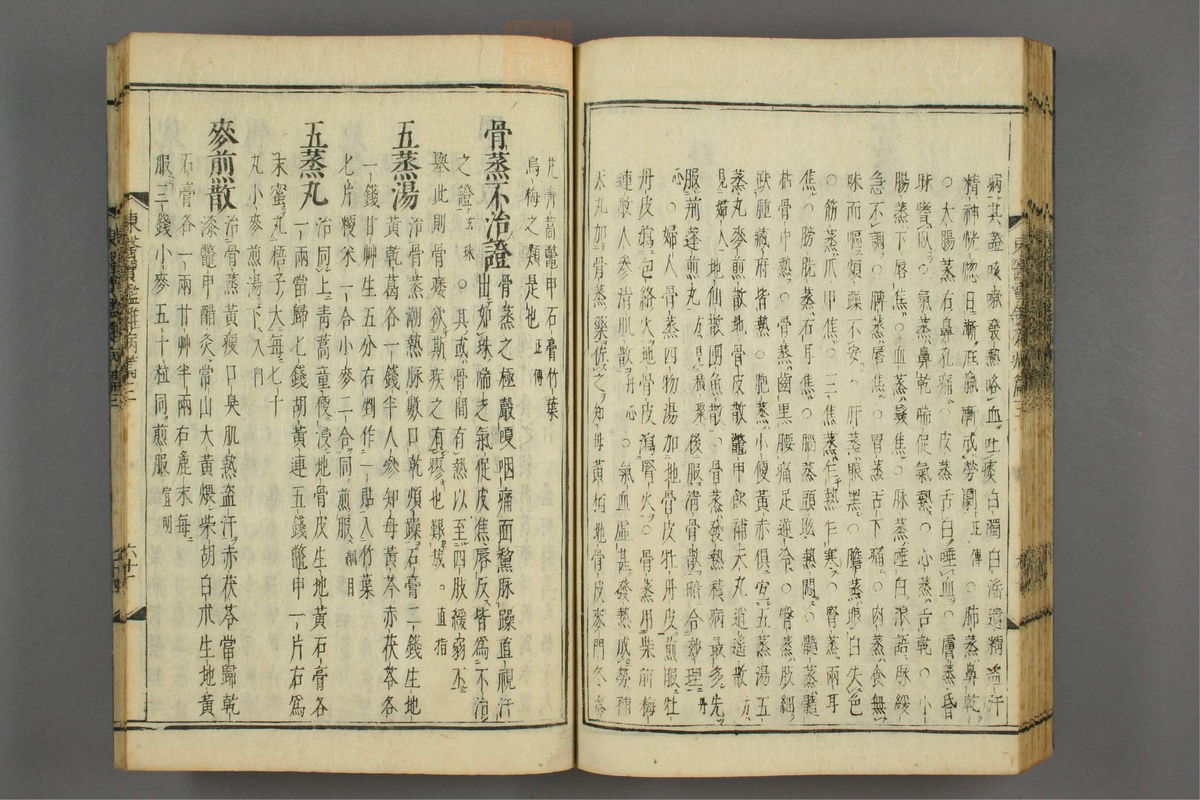 病其證咳嗽發熱咯血吐痰白濁白淫遺精盜汗
精神恍惚日漸尫羸漸成勞瘵正傳○肺蒸鼻乾
○大腸蒸右鼻孔痛○皮蒸舌白唾血○膚蒸昏
昧嗜臥○氣蒸鼻乾喘促氣熱○心蒸舌乾○小
腸蒸下唇焦○血蒸髮焦○脉蒸唾白浪語脉緩
急不調○脾蒸唇焦○胃蒸舌下痛○肉蒸食無
味而嘔煩躁不安○肝蒸眼黑○膽蒸眼白失色
○筋蒸爪甲焦○三焦蒸乍熱乍寒○腎蒸兩耳
焦○膀胱蒸右耳焦○腦蒸頭眩熱悶○髓蒸髓
枯骨中熱○骨蒸齒黑腰痛足逆冷○臀蒸肢細
趺腫藏府皆熱○胞蒸小便黃赤俱宜五蒸湯五
蒸丸麥煎散地骨皮散鱉甲飮補天丸逍遙散方
見婦人地仙散團魚散○骨蒸發熱積病最多先
服莿蓬煎丸方見積聚後服淸骨散暗合妙理丹
心○婦人骨蒸四物湯加地骨皮牡丹皮煎服牡
丹皮瀉包絡火地骨皮瀉腎火○骨蒸用柴前梅
連散人參淸肌散丹心○氣血虛甚發熱成勞補
天丸加骨蒸藥佐之知母黃栢地骨皮麥門冬秦
艽靑蒿鱉甲石膏竹葉
烏梅之類是也正傳
骨蒸不治證骨蒸之極聲嗄咽痛面黧脉躁直視汗
出如珠喘乏氣促皮焦唇反皆爲不治
之證玄珠○其或骨間有熱以至四肢緩弱不
擧此則骨痿欲斯疾之有瘳也艱哉直指
五蒸湯治骨蒸潮熱脉數口乾煩躁石膏二錢生地
黃乾葛各一錢半人參知母黃芩赤茯苓各
一錢甘艸生五分右剉作一貼入竹葉
七片粳米一合小麥二合同煎服綱目
五蒸丸治同上靑蒿童便浸地骨皮生地黃石膏各
一兩當歸七錢胡黃連五錢鱉甲一片右爲
末蜜丸梧子大每七十
丸小麥煎湯下入門
麥煎散治骨蒸黃瘦口臭肌熱盜汗赤茯苓當歸乾
漆鱉甲醋灸常山大黃煨柴胡白朮生地黃
石膏各一兩甘艸半兩右麁末每
服三錢小麥五十粒同煎服宣明
東醫寶鑑雜病篇